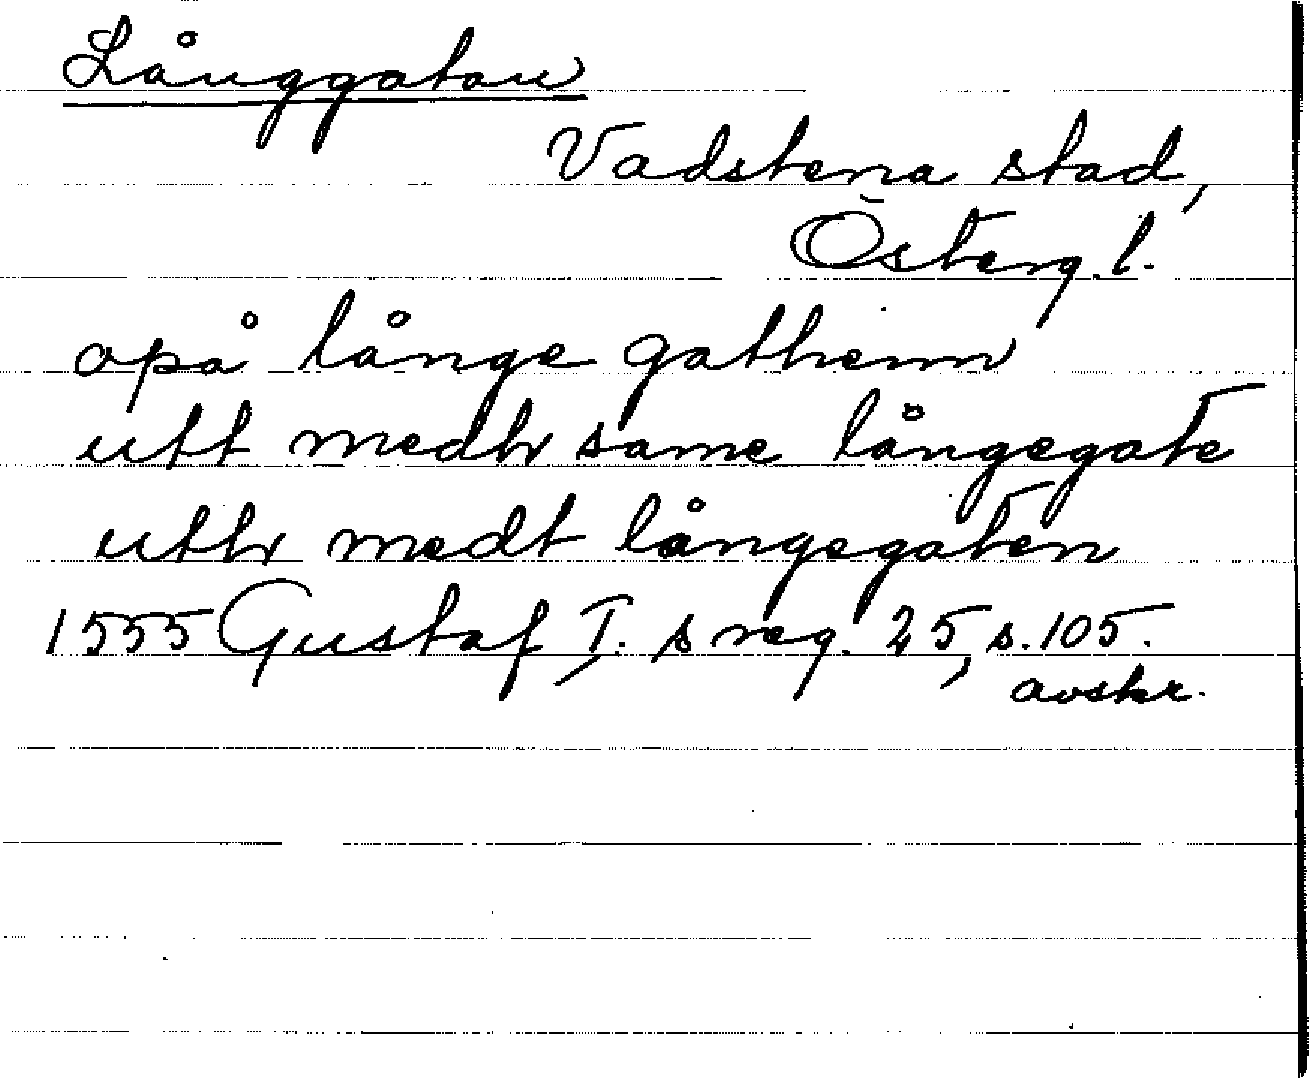 Långgatan
Vadstena stad,
Österg. l.
opå långe gathenn
utt medh same långegate
utth medt långegaten
1555 Gustaf I. s reg. 25, s. 105.
avskr.